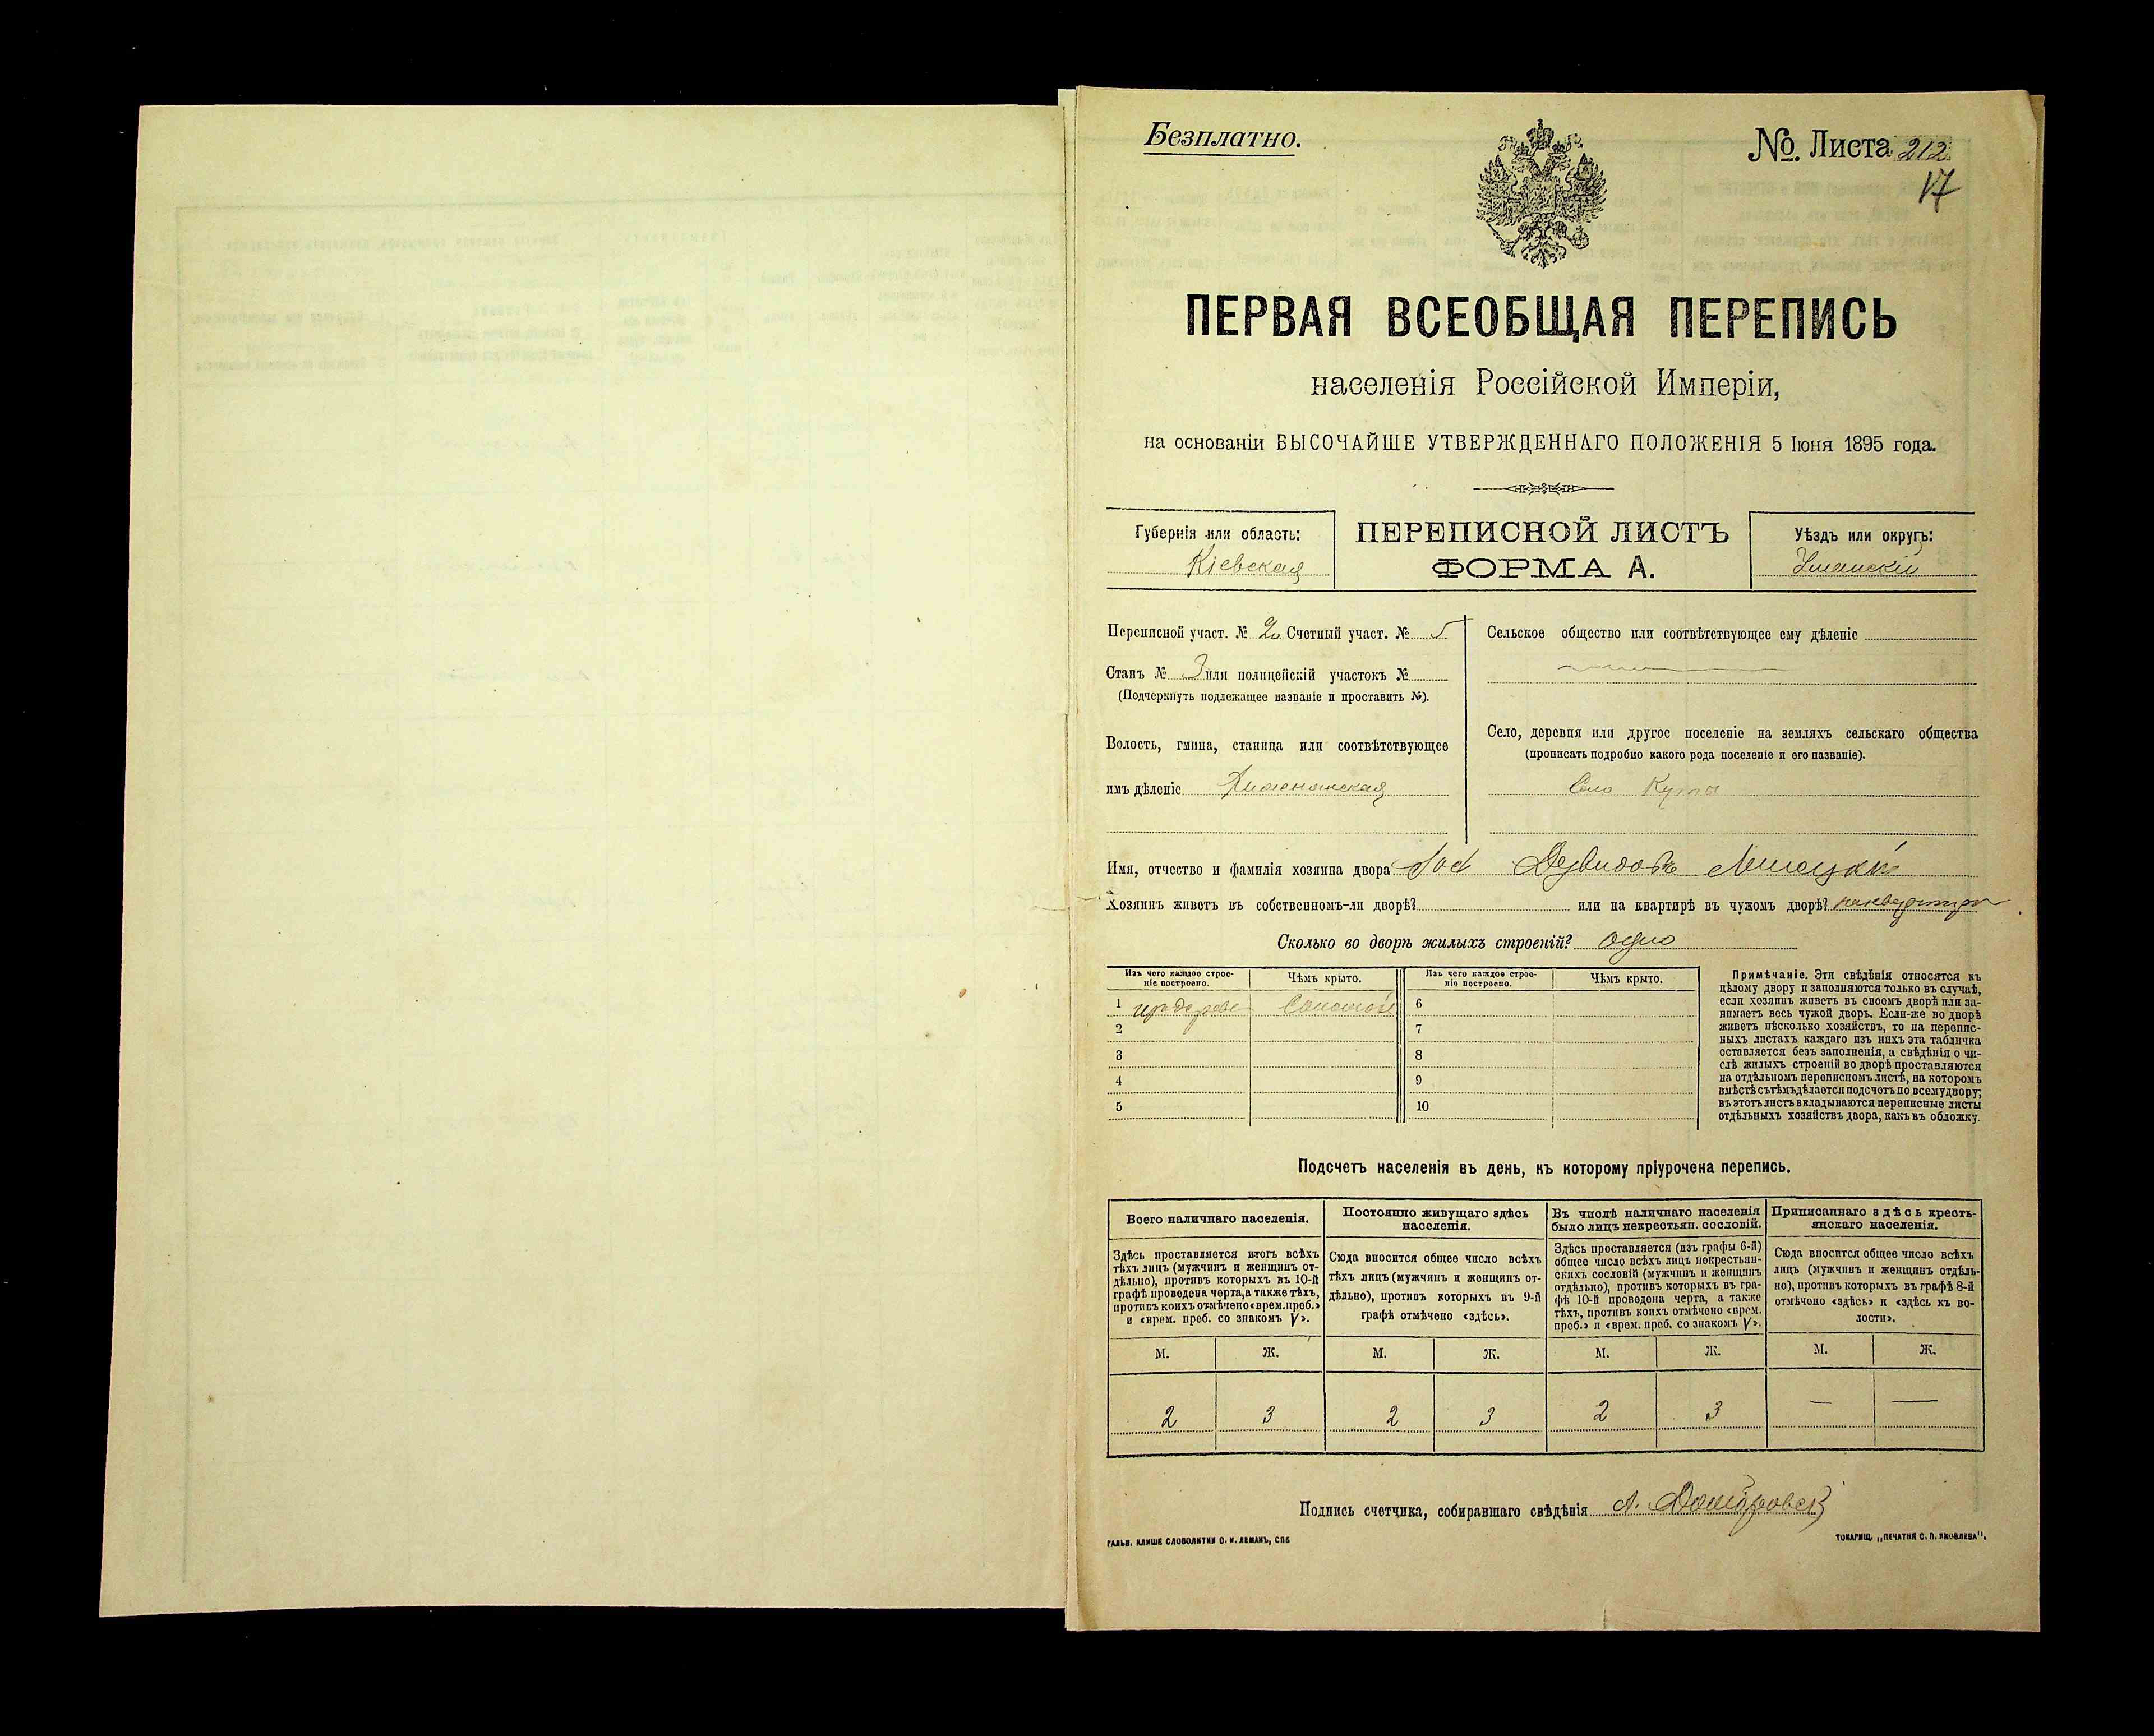 Безплатно.
№. Листа 212
17
ПЕРВАЯ ВСЕОБЩАЯ ПЕРЕПИСЬ
населенія Россійской Имперіи,
на основаніи ВЫСОЧАЙШЕ УТВЕРЖДЕННАГО ПОЛОЖЕНІЯ 5 Іюня 1895 года.
Губернія или область:
Кіевская
ПЕРЕПИСНОЙ ЛИСТЪ
ФОРМА А.
Уѣздъ или округъ:
Уманскій
Переписной участ. № 2 Счетный участ. № 5
Станъ № 3 или полицейскій участокъ №
(Подчеркнуть подлежащее названіе и проставить №).
Волость, гмина, станица или соотвѣтствующее
имъ дѣленіе
Сельское общество или соотвѣтствующее ему дѣленіе
Село, деревня или другое поселеніе на земляхъ сельскаго общества
(прописать подробно какого рода поселеніе и его названіе).
Село Кута
Имя, отчество и фамилія хозяина двора
Хозяинъ живетъ въ собственномъ-ли дворѣ? или на квартирѣ въ чужомъ дворѣ? на квартире
Сколько во дворѣ жилыхъ строеній? одно
Изъ чего каждое строе-
ніе построено.
Чѣмъ крыто.
Изъ чего каждое строе-
ніе построено.
Чѣмъ крыто.
1 Соломой 6
2 7
3 8
4 9
5 10
Примѣчаніе. Эти свѣдѣнія относятся къ
цѣлому двору и заполняются только въ случаѣ,
если хозяинъ живетъ въ своемъ дворѣ или за-
нимаетъ весь чужой дворъ. Если-же во дворѣ
живетъ нѣсколько хозяйствъ, то на перепис-
ныхъ листахъ каждаго изъ нихъ эта табличка
оставляется безъ заполненія, а свѣдѣнія о чи-
слѣ жилыхъ строеній во дворѣ проставляются
на отдѣльномъ переписномъ листѣ, на которомъ
вмѣстѣ съ тѣмъ дѣлается подсчетъ по всему двору;
въ этотъ листъ вкладываются переписные листы
отдѣльныхъ хозяйствъ двора, какъ въ обложку.
Подсчетъ населенія въ день, къ которому пріурочена перепись.
Всего наличнаго населенія.
Здѣсь проставляется итогъ всѣхъ
тѣхъ лицъ (мужчинъ и женщинъ от-
дѣльно), противъ которыхъ въ 10-й
графѣ проведена черта, а также тѣхъ,
противъ коихъ отмѣчено «врем. преб.»
и «врем. преб. со знакомъ V».
Постоянно живущаго здѣсь
населенія.
Сюда вносится общее число всѣхъ
тѣхъ лицъ (мужчинъ и женщинъ от-
дѣльно), противъ которыхъ въ 9-й
графѣ отмѣчено «здѣсь».
Въ числѣ наличнаго населенія
было лицъ некрестьян. сословій.
Здѣсь проставляется (изъ графы 6-й)
общее число всѣхъ лицъ некрестьян-
скихъ сословій (мужчинъ и женщинъ
отдѣльно), противъ которыхъ въ гра-
фѣ 10-й проведена черта, а также
тѣхъ, противъ коихъ отмѣчено «врем.
преб.» и «врем. преб. со знакомъ V».
Приписаннаго здѣсь кресть-
янскаго населенія.
Сюда вносится общее число всѣхъ
лицъ (мужчинъ и женщинъ отдѣль-
но), противъ которыхъ въ графѣ 8-й
отмѣчено «здѣсь» и «здѣсь къ во-
лости».
М. Ж. М. Ж. М. Ж. М. Ж.
2 3 2 3 2 3 — —
Подпись счетчика, собиравшаго свѣдѣнія А.
ГАЛЬВ. КЛИШЕ СЛОВОЛИТНИ О. И. ЛЕМАНЪ, СПБ
ТОВАРИЩ. „ПЕЧАТНЯ С. П. ЯКОВЛЕВА".